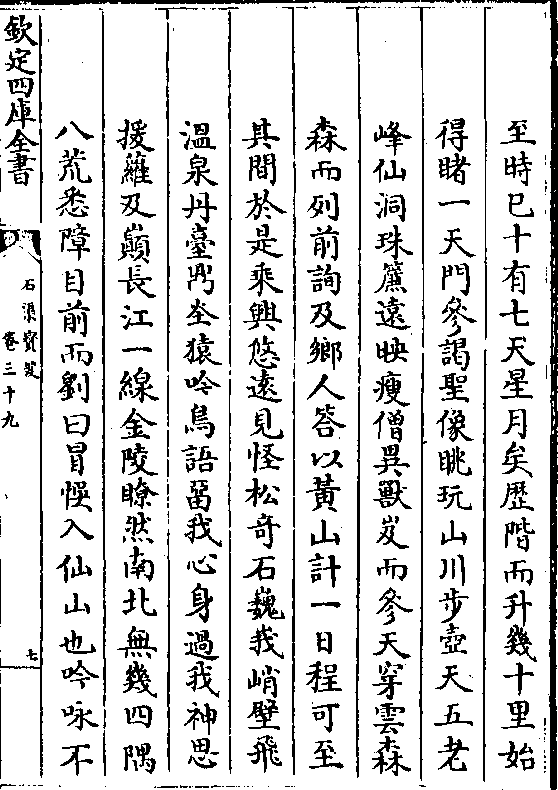 至時已十有七天星月矣歴階而升幾十里始
得睹一天門參謁聖像眺玩山川步壺天五老
峰仙洞珠簾遠映瘦僧異獸岌而參天穿雲森
森而列前詢及鄉人答以黃山計一日程可至
其間於是乘興悠遠見怪松奇石巍峩峭壁飛
溫泉丹臺鼎峚猿吟鳥語畱我心身過我神思
援蘿及巔長江一線金陵瞭然南北無幾四隅
八荒悉障目前而劉曰冒悞入仙山也吟咏不
欽定四庫全書
石渠寳笈
卷三十九
七